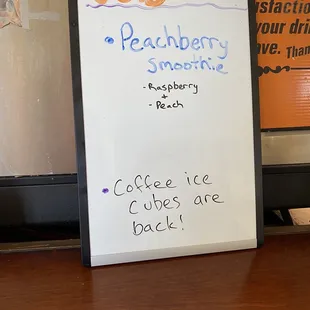 • Peachberry
smoothie
- Raspberry
+
- Peach
• Coffee ice
cubes are
back!
your drin
ave. Than
your